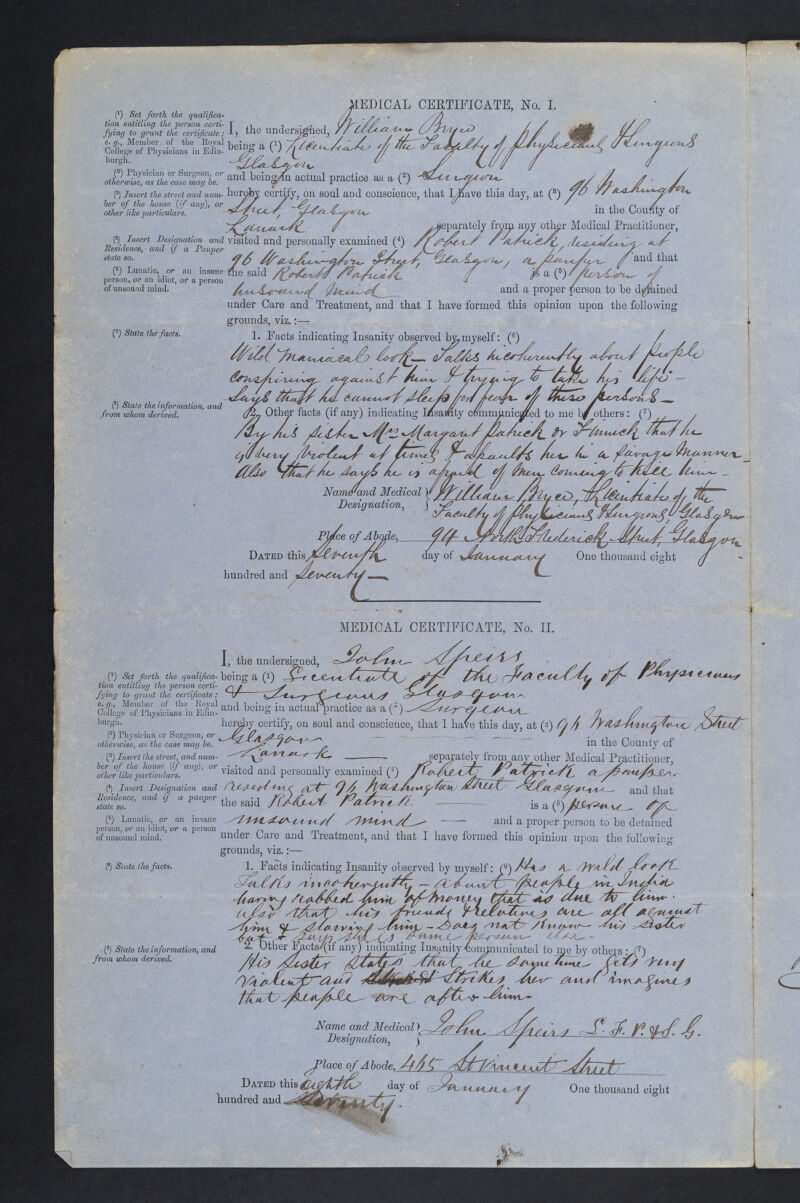 MEDICAL CERTIFICATE, No. I.
(1) Set forth the qualifica-
tion entitling the person certi-
fying to grant the certificate;
e.g., Member of the Royal
College of Physicians in Edin-
burgh.
I, the undersigned, William Bryce
being a (1) Licentiate of the Faculty of Physicians & Surgeons
Glasgow
(2) Physician or Surgeon, or
otherwise, as the case may be.
and being in actual practice as a (2) Surgeon
(3) Insert the street and num-
ber of the house (if any), or
other like particulars.
hereby certify, on soul and conscience, that I have this day, at (3) 96 Washington
Street, Glasgow in the County of
Lanark separately from any other Medical Practitioner,
(4) Insert Designation and
Residence, and if a Pauper
state so.
visited and personally examined (4) Robert Patrick, residing at
96 Washington Street, Glasgow, a pauper and that
(5) Lunatic, or an insane
person, or an idiot, or a person
of unsound mind.
the said Robert Patrick is a (5) person of
unsound mind and a proper person to be detained
under Care and Treatment, and that I have formed this opinion upon the following
grounds, viz.:—
(6) State the facts.
1. Facts indicating Insanity observed by myself: (6)
Wild maniacal look — Talks incoherently about people
conspiring against him & trying to take his life —
Says that he cannot sleep for fear of these persons —
(7) State the information, and
from whom derived.
2. Other facts (if any) indicating Insanity communicated to me by others: (7)
By his sister Mrs Margaret Patrick or Finnick that he
is very violent at times & assaults her in a savage manner —
Also that he says he is afraid of men coming to kill him —
Name and Medical
Designation,
William Bryce, Licentiate of the
Faculty of Physicians & Surgeons, Glasgow
Place of Abode, 94 North Frederick Street, Glasgow
DATED this Seventh day of January One thousand eight
hundred and seventy —
MEDICAL CERTIFICATE, No. II.
(1) Set forth the qualifica-
tion entitling the person certi-
fying to grant the certificate;
e.g., Member of the Royal
College of Physicians in Edin-
burgh.
I, the undersigned, John Speirs
being a (1) Licentiate of the Faculty of Physicians
& Surgeons Glasgow
and being in actual practice as a (2) Surgeon
(2) Physician or Surgeon, or
otherwise, as the case may be.
hereby certify, on soul and conscience, that I have this day, at (3) 96 Washington Street
Glasgow in the County of
(3) Insert the street, and num-
ber of the house (if any), or
other like particulars.
Lanark — separately from any other Medical Practitioner,
visited and personally examined (4) Robert Patrick a pauper
(4) Insert Designation and
Residence, and if a pauper
state so.
residing at 96 Washington Street Glasgow and that
the said Robert Patrick — is a (5) person of
(5) Lunatic, or an insane
person, or an idiot, or a person
of unsound mind.
unsound mind — and a proper person to be detained
under Care and Treatment, and that I have formed this opinion upon the following
grounds, viz.:—
(6) State the facts.
1. Facts indicating Insanity observed by myself: (6) Has a wild look
Talks incoherently — about people in India
having robbed him of money that is due to him.
also that his friends & relatives are all against
him & starving him — Does not know his sister
but says she is some person else.
(7) State the information, and
from whom derived.
2. Other Facts (if any) indicating Insanity communicated to me by others: (7)
His sister states that he sometime gets very
violent and strikes her and imagines
that people are after him.
Name and Medical
Designation,
John Speirs L. F. P. & S. G.
Place of Abode, 465 St Vincent Street
DATED this Eighth day of January One thousand eight
hundred and Seventy.